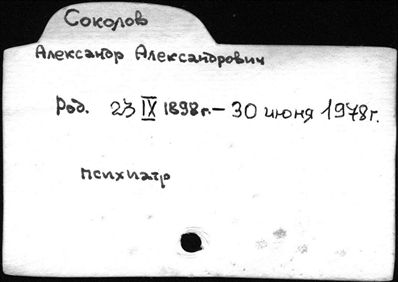 Соколов
Александр Александрович
Род. 23 IX 1898 г. — 30 июня 1978 г.
психиатр